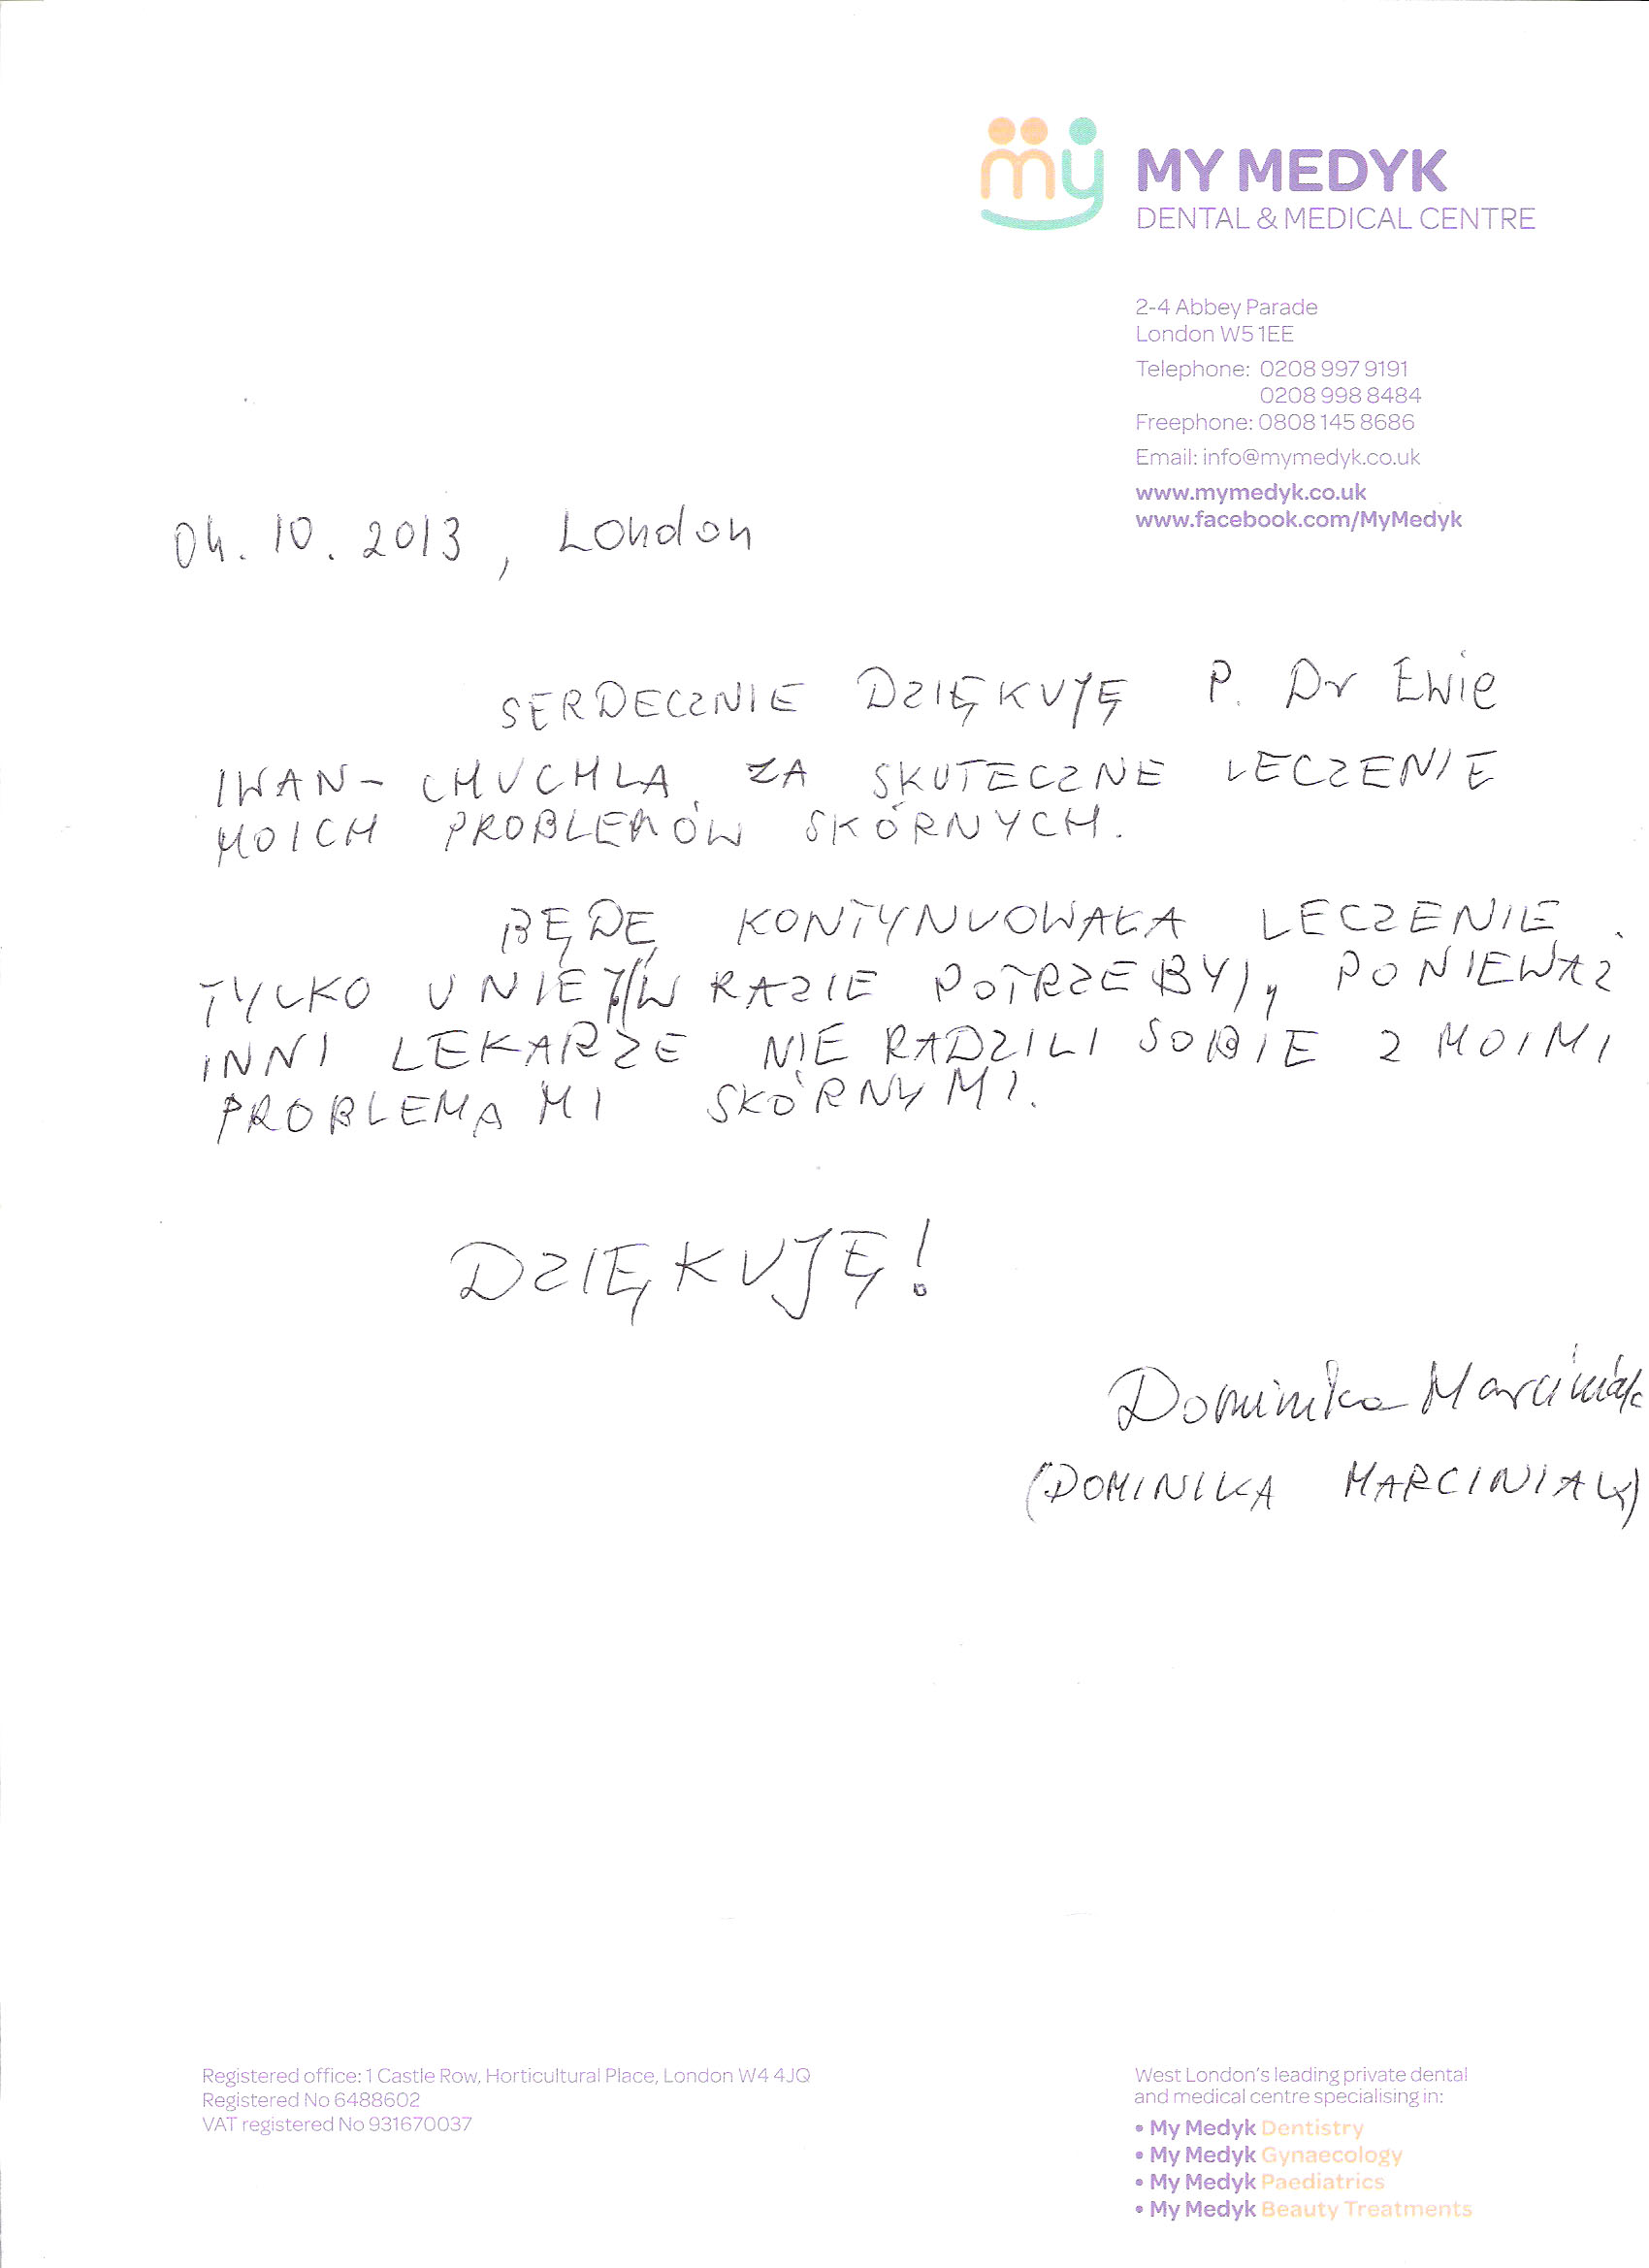 my
MY MEDYK
DENTAL & MEDICAL CENTRE
2-4 Abbey Parade
London W5 1EE
Telephone: 0208 997 9191
0208 998 8484
Freephone: 0808 145 8686
Email: info@mymedyk.co.uk
www.mymedyk.co.uk
www.facebook.com/MyMedyk
04.10.2013, London
SERDECZNIE DZIĘKUJĘ P. Dr Ewie
IWAN-CHUCHLA ZA SKUTECZNE LECZENIE
MOICH PROBLEMÓW SKÓRNYCH.
BĘDĘ KONTYNUOWAŁA LECZENIE
TYLKO U NIEJ (W RAZIE POTRZEBY), PONIEWAZ
INNI LEKARZE NIE RADZILI SOBIE Z MOIMI
PROBLEMAMI SKÓRNYMI.
DZIĘKUJĘ!
Dominika Marciniak
(DOMINIKA MARCINIAK)
Registered office: 1 Castle Row, Horticultural Place, London W4 4JQ
Registered No 6488602
VAT registered No 931670037
West London's leading private dental
and medical centre specialising in:
• My Medyk Dentistry
• My Medyk Gynaecology
• My Medyk Paediatrics
• My Medyk Beauty Treatments